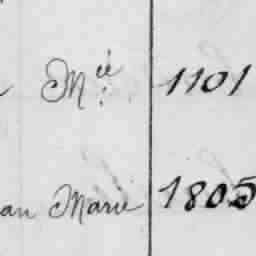 Mie 1101
an Marie 1805